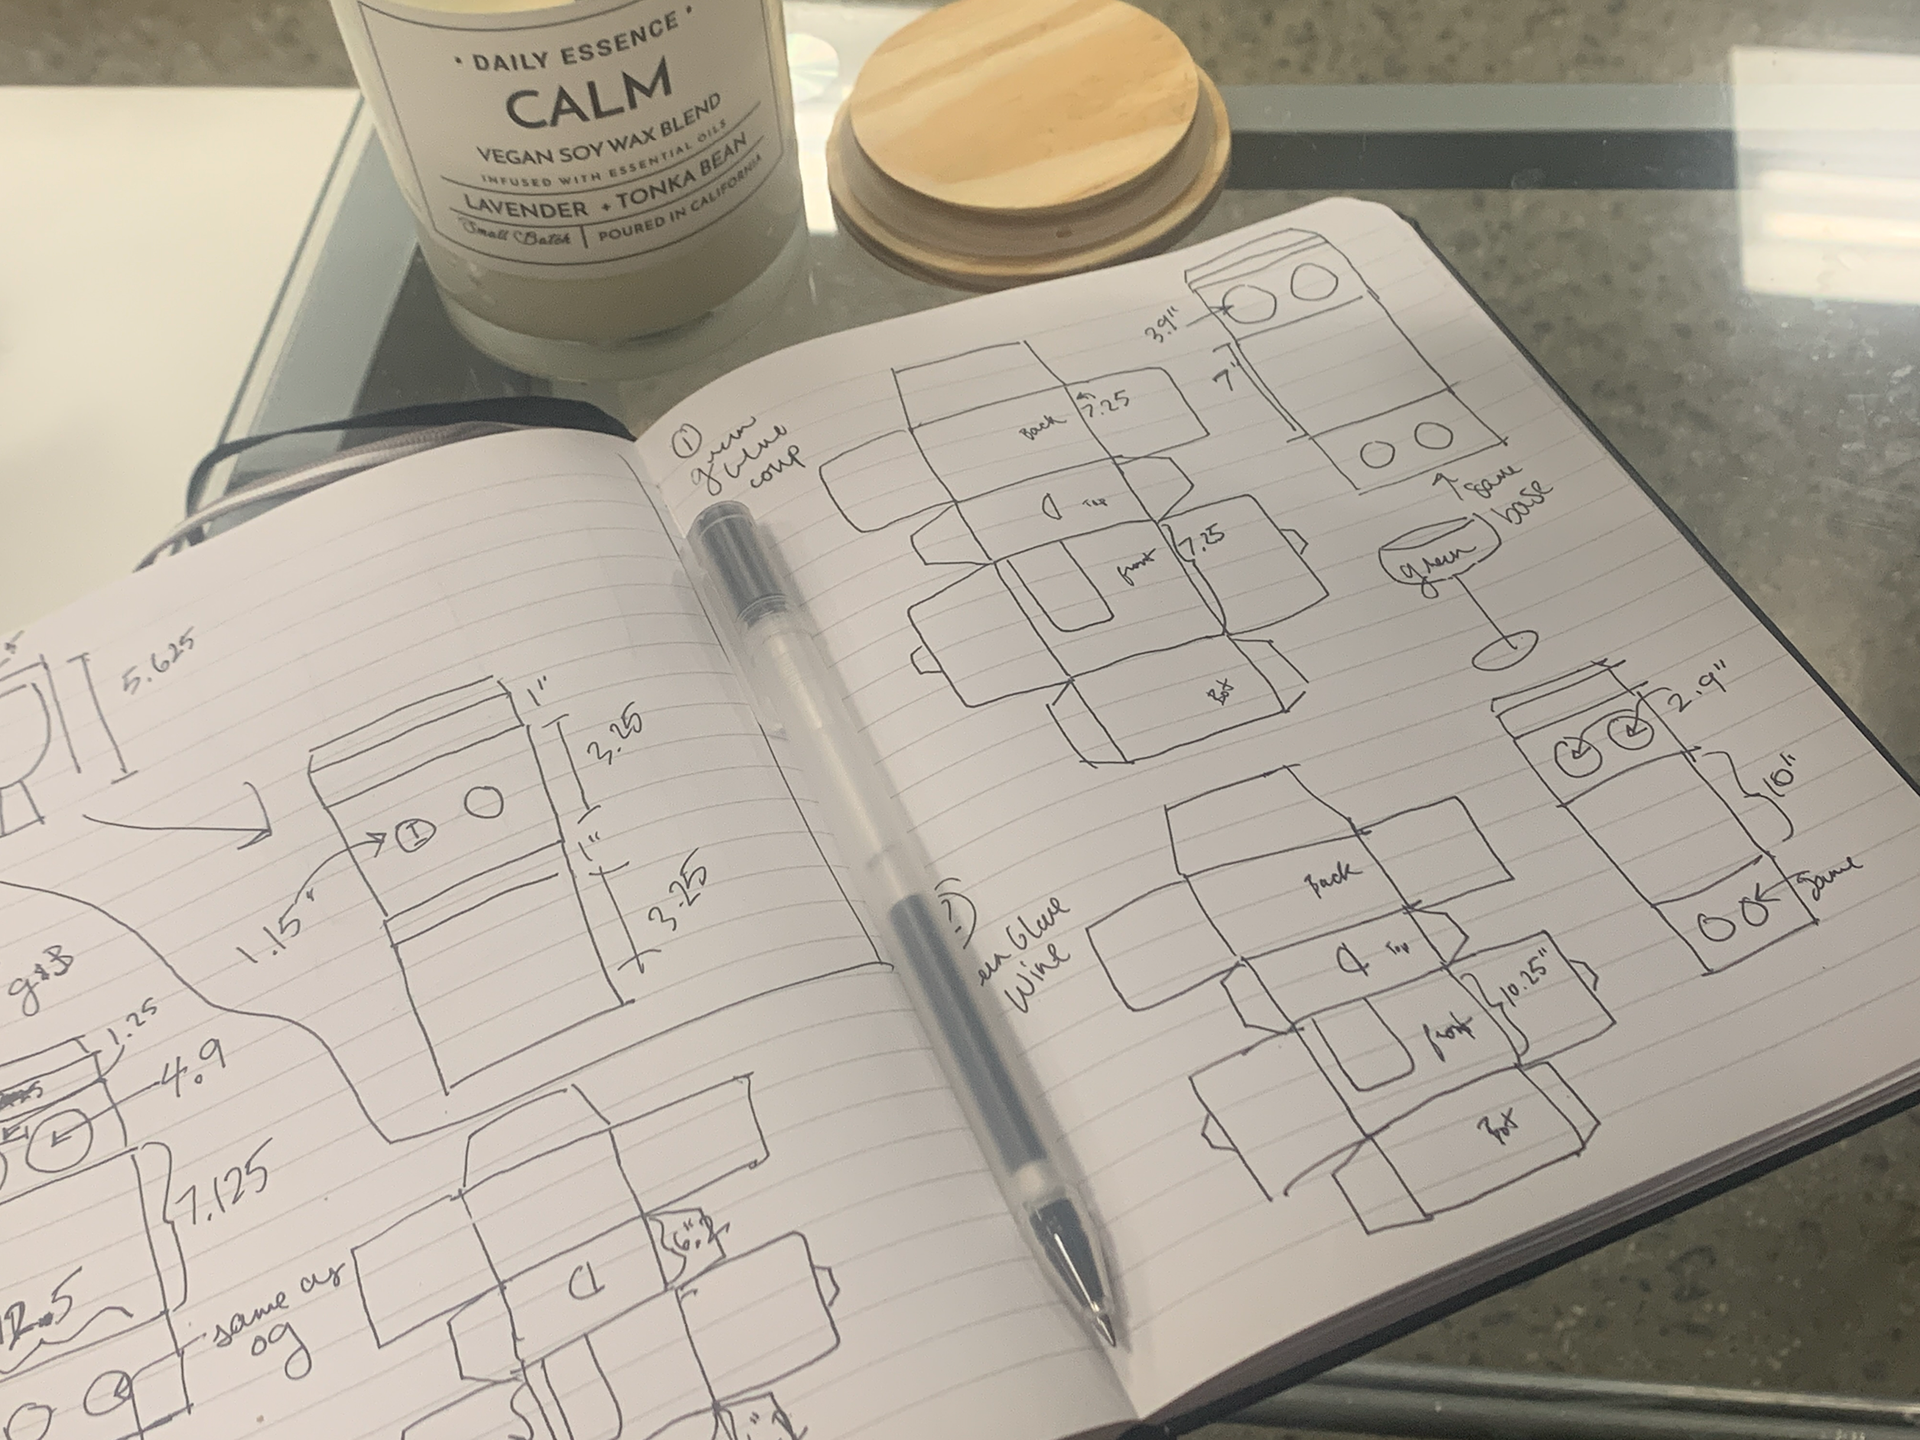 • DAILY ESSENCE •
CALM
VEGAN SOY WAX BLEND
INFUSED WITH ESSENTIAL OILS
LAVENDER + TONKA BEAN
Small Batch | POURED IN CALIFORNIA
5.625
1"
3.25
1"
3.25
1.15"
g+B
1.25
4.9
7.125
12.5
same as
og
①
green
coup
Back
7.25
Top
front
7.25
Bot
3.9"
7"
same
base
green
2.9"
10"
same
Wine
Back
Top
front
10.25"
Bot